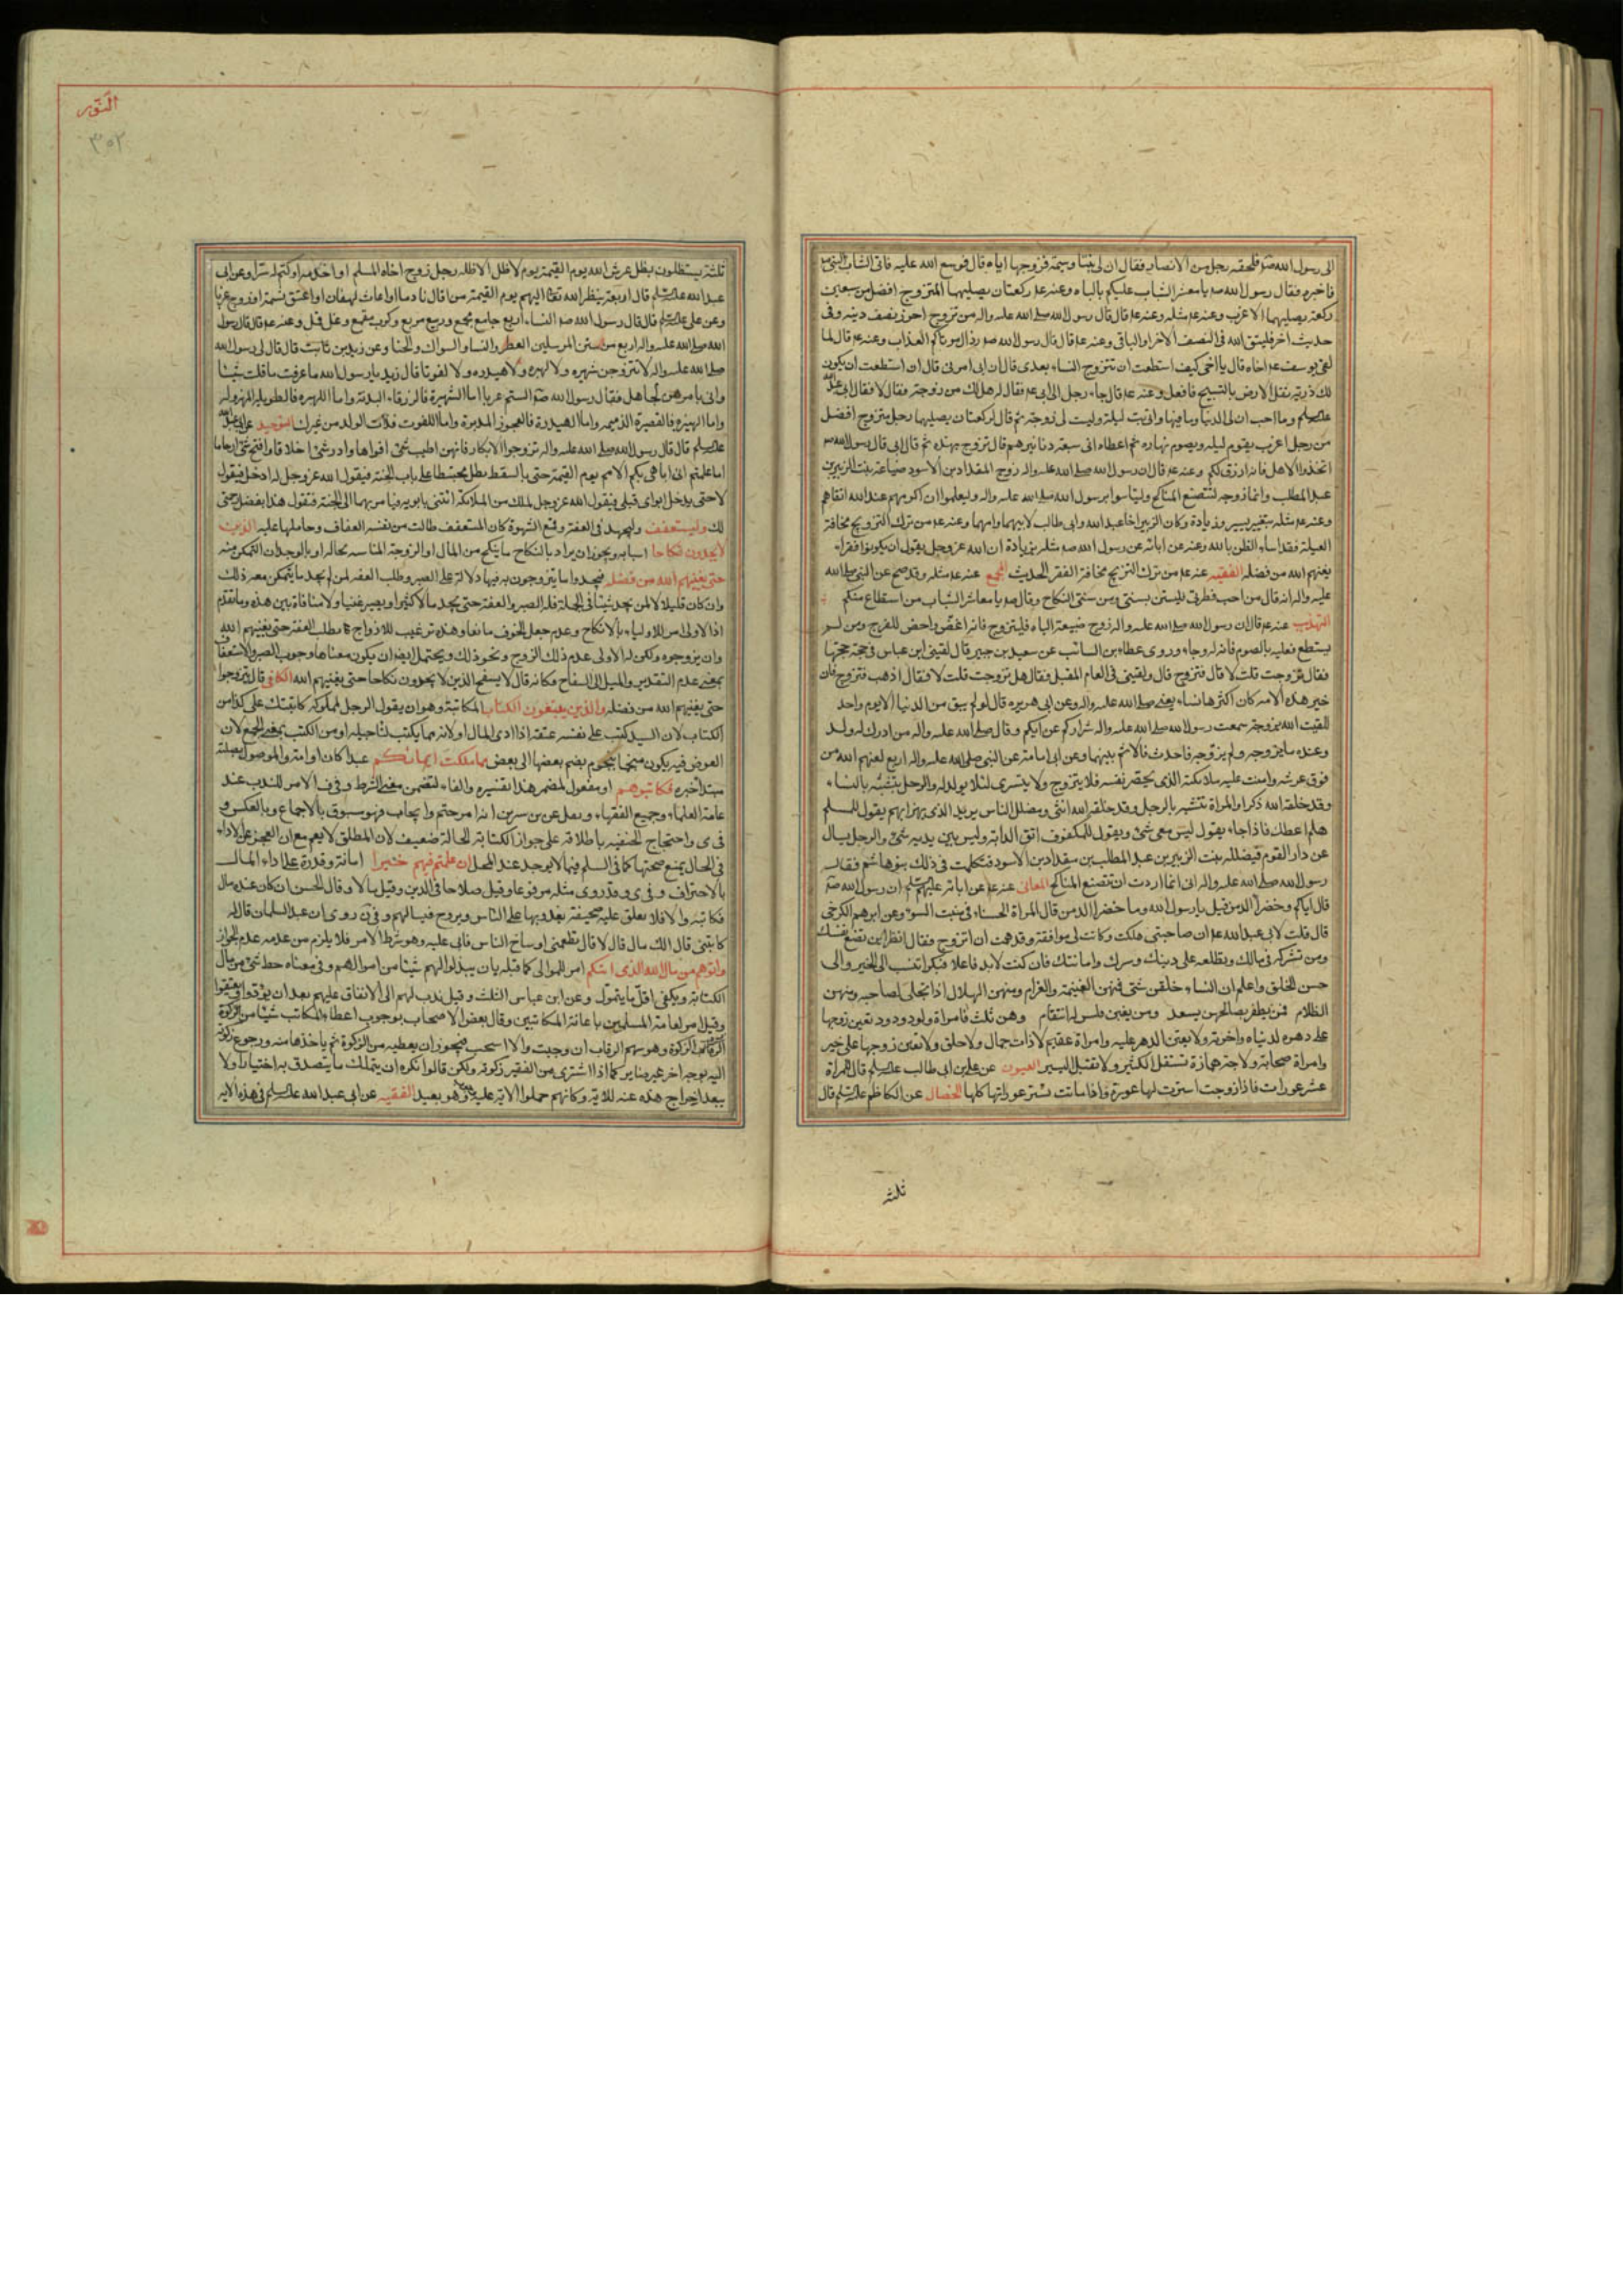 الى رسول الله صم فلحقه رجل من الانصار فقال ان لى بنتا وسيمة فزوجها اياه قال فوسع الله عليه فاتى الشاب النبى ص
فاخبره فقال رسول الله صم يا معشر الشباب عليكم بالباه وعنه عم ركعتان يصليهما المتزوج افضل من سبعين
ركعة يصليهما الاعزب وعنه عم مثله وعنه عم قال قال رسول الله صلى الله عليه واله من تزوج احرز نصف دينه وفى
حديث اخر فليتق الله فى النصف الاخر او الباقى وعنه عم قال قال رسول الله صم رذال موتاكم العذاب وعنه عم قال لما
لقى يوسف عم اخاه قال يا اخى كيف استطعت ان تتزوج النساء بعدى قال ان ابى امرنى قال ان استطعت ان يكون
لك ذرية تثقل الارض بالتسبيح فافعل وعنه عم قال جاء رجل الى ابى عم فقال له هل لك من زوجة فقال لا فقال ابى
عليه السلم وما احب ان لى الدنيا وما فيها وانى بت ليلة وليست لى زوجة ثم قال الركعتان يصليهما رجل متزوج افضل
من رجل اعزب يقوم ليله ويصوم نهاره ثم اعطاه ابى سبعة دنانير ثم قال تزوج بهذه ثم قال ابى قال رسول الله ص
اتخذوا الاهل فانه ارزق لكم وعنه عم قال ان رسول الله صلى الله عليه واله زوج المقداد بن الاسود ضباعة بنت الزبير بن
عبد المطلب وانما زوجه لتتضع المناكح وليتاسوا برسول الله صلى الله عليه واله وليعلموا ان اكرمهم عند الله اتقاهم
وعنه عم مثله بتغيير يسير وزيادة وكان الزبير اخا عبد الله وابى طالب لابيهما وامهما وعنه عم من ترك التزويج مخافة
العيلة فقد اساء الظن بالله وعنه عن ابائه عن رسول الله صم مثله بزيادة ان الله عز وجل يقول ان يكونوا فقراء
يغنهم الله من فضله الفقيه عنه عم من ترك التزويج مخافة الفقر الحديث المجمع عنه عم مثله وقد صح عن النبى صلى الله
عليه واله انه قال من احب فطرتى فليستن بسنتى ومن سنتى النكاح وقال صم يا معاشر الشباب من استطاع منكم
التهذيب عنه عم قال ان رسول الله صلى الله عليه واله زوج ضبيعة الباه فليتزوج فانه اغض واحصن للفرج ومن لم
يستطع فعليه بالصوم فانه له وجاء وروى عطاء بن السائب عن سعيد بن جبير قال لقينى ابن عباس فى حجة حججتها
فقال تزوجت قلت لا قال فتزوج قال ولقينى فى العام المقبل فقال هل تزوجت قلت لا فقال اذهب فتزوج فان
خير هذه الامة كان اكثرها نساء يعنى صلى الله عليه واله وعن ابى هريره قال لو لم يبق من الدنيا الا يوم واحد
للقيت الله بزوجة سمعت رسول الله صلى الله عليه واله شراركم عزابكم وقال صلى الله عليه واله من ادرك له ولد
وعنده ما يزوجه ولم يزوجه فاحدث فالاثم بينهما وعن ابى امامة عن النبى صلى الله عليه واله اربع لعنهم الله من
فوق عرشه وامنت عليه ملائكته الذى يحصر نفسه فلا يتزوج ولا يتسرى لئلا يولد له والرجل يتشبه بالنساء
وقد خلقه الله ذكرا والمراة تتشبه بالرجل وقد خلقها الله انثى ومضلل الناس يريد الذى يهزا بهم يقول للمسلم
هلم اعطك فاذا جاء يقول ليس معى شئ ويقول للمكفوف اتق الدابة وليس بين يديه شئ والرجل يسال
عن دار القوم فيضلله بنت الزبير بن عبد المطلب من مقداد بن الاسود فتكلمت فى ذلك بنو هاشم فقال
رسول الله صلى الله عليه واله انى انما اردت ان تتضع المناكح المعانى عنه عم عن ابائه عليهم السلم ان رسول الله صم
قال اياكم وخضراء الدمن قيل يا رسول الله وما خضراء الدمن قال المراة الحسناء فى منبت السوء وعن ابرهيم الكرخى
قال قلت لابى عبد الله عم ان صاحبتى هلكت وكانت لى موافقة وقد هممت ان اتزوج فقال انظر اين تضع نفسك
ومن تشركه فى مالك وتطلعه على دينك وسرك وامانتك فان كنت لا بد فاعلا فبكرا تنسب الى الخير والى
حسن الخلق واعلم ان النساء خلقن شتى فمنهن الغنيمة والغرام ومنهن الهلال اذا تجلى لصاحبه ومنهن
الظلام فمن يظفر بصالحهن يسعد ومن يغبن فليس له انتقام وهن ثلث فامراة ولود ودود تعين زوجها
على دهره لدنياه واخرته ولا تعين الدهر عليه وامراة عقيم لا ذات جمال ولا خلق ولا تعين زوجها على خير
وامراة صخابة ولاجة همازة تستقل الكثير ولا تقبل اليسير العيون عن على بن ابى طالب عليه السلم قال للمراة
عشر عورات فاذا زوجت استرت لها عورة واذا ماتت ستر عوراتها كلها الخصال عن الكاظم عليه السلم قال
ثلثه
النور
٣٥٢
ثلثة يستظلون بظل عرش الله يوم القيمة يوم لا ظل الا ظله رجل زوج اخاه المسلم او اخدمه او كتم له سرا وعن ابى
عبد الله عليه السلم قال اربعة ينظر الله تعا اليهم يوم القيمة من اقال نادما او اغاث لهفان او اعتق نسمة او زوج عزبا
وعن على عليه السلم قال قال رسول الله صم النساء اربع جامع مجمع وربيع مربع وكرب مقمع وغل قمل وعنه عم قال قال رسول
الله صلى الله عليه واله اربع من سنن المرسلين العطر والنساء والسواك والحنا وعن زيد بن ثابت قال قال لى رسول الله
صلى الله عليه واله لا تتزوجن شهبرة ولا لهبرة ولا نهبرة ولا هيدرة ولا لفوتا قال زيد يا رسول الله ما عرفت مما قلت شيئا
وانى بامرهن لجاهل فقال رسول الله صم الستم عربا اما الشهبرة فالزرقاء البذية واما اللهبرة فالطويلة المهزولة
واما النهبرة فالقصيرة الذميمة واما الهيدرة فالعجوز المدبرة واما اللفوت فذات الولد من غيرك التوحيد عن ابى عبد الله
عليه السلم قال قال رسول الله صلى الله عليه واله تزوجوا الابكار فانهن اطيب شئ افواها وادر شئ اخلافا وافتح شئ ارحاما
اما علمتم انى اباهى بكم الامم يوم القيمة حتى بالسقط يظل محبنطئا على باب الجنة فيقول الله عز وجل له ادخل فيقول
لا حتى يدخل ابواى قبلى فيقول الله عز وجل لملك من الملائكة ائتنى بابويه فيامر بهما الى الجنة فيقول هذا بفضل رحمتى
لك وليستعفف وليجهد فى العفة وقمع الشهوة كان المستعفف طالب من نفسه العفاف وحاملها عليه الذين
لا يجدون نكاحا اسبابه ويجوز ان يراد بالنكاح ما ينكح من المال او الزوجة المناسبه بحاله او بالوجدان التمكن منه
حتى يغنيهم الله من فضله فيجدوا ما يتزوجون به فيها دلالة على الصبر وطلب العفة لمن لم يجد ما يتمكن معه ذلك
وان كان قليلا لا لمن يجد شيئا فى الجملة فله الصبر والعفة حتى يجد مالا كثيرا ويصير غنيا ولا منافاة بين هذه وما تقدم
اذ الاولى امر للاولياء بالانكاح وعدم جعل الخوف مانعا وهذه ترغيب للازواج بطلب العفة حتى يغنيهم الله
وان يزوجوه ولكن لدلالة الاولى عدم ذلك الزوج ونحو ذلك ويحتمل ايضا ان يكون معناها وجوب الصبر والاستعفاف
بمعنى عدم التقدير والميل الى السفاح فكانه قال لا يسفح الذين لا يجدون نكاحا حتى يغنيهم الله الكافى قال يتزوجوا
حتى يغنيهم الله من فضله والذين يبتغون الكتاب المكاتبة وهو ان يقول الرجل لمملوكه كاتبتك على كذا من
الكتاب لان السيد كتب على نفسه عتقه اذا ادى المال او لانه مما يكتب لتاجيله او من الكتب بمعنى الجمع لان
العوض فيه يكون منجما بنجوم يضم بعضها الى بعض مما ملكت ايمانكم عبدا كان او امة والموصول بصلته
مبتدا خبره فكاتبوهم او مفعول لمضمر هذا تفسيره والفاء لتضمن معنى الشرط وفى ف الامر للندب عند
عامة العلماء وجميع الفقهاء ونقل عن بن سيرين انه امر حتم وايجاب فهو مسبوق بالاجماع وبالعكس و
فى ى واحتجاج الحنفيه باطلاقه على جواز الكتابة الحالة ضعيف لان المطلق لا يعم مع ان العجز عن الاداء
فى الحال يمنع صحتها كما فى السلم فيما لا يوجد عند المحل ان علمتم فيهم خيرا امانة وقدرة على اداء المال
بالاحتراف وفى ى وقد روى مثله مرفوعا وقيل صلاحا فى الدين وقيل مالا وقال الحسن ان كان عنده مال
فكاتبه والا فلا يعلق عليه صحيفة يغدو بها على الناس ويروح فيسالهم وفى ن روى ان عبدا لسلمان قال له
كاتبنى قال الك مال قال لا قال تطعمنى اوساخ الناس فابى عليه وهو شرط الامر فلا يلزم من عدمه عدم الجواز
واتوهم من مال الله الذى اتيكم امر للموالى كما قبله بان يبذلوا لهم شيئا من اموالهم وفى معناه حط شئ من مال
الكتابة ويكفى اقل ما يتمول وعن ابن عباس الثلث وقيل ندب لهم الى الانفاق عليهم بعد ان يؤدوا ويعتقوا
وقيل امر لعامة المسلمين باعانة المكاتبين وقال بعض الاصحاب بوجوب اعطاء المكاتب شيئا من الزكوة
الزكوة وهو سهم الرقاب ان وجبت والا استحب فيجوز ان يعطيه من الزكوة ثم ياخذها منه ورجوع زكوته
اليه بوجه اخر غير ضاير كما اذا اشترى من الفقير زكوته ولكن قالوا نكره ان يتملك ما يتصدق به اختيارا ولا
يبعد اخراج هذه عنه للاية وكانهم حملوا الاية عليه وهو بعيد الفقيه عن ابى عبد الله عليه السلم فى هذه الايه